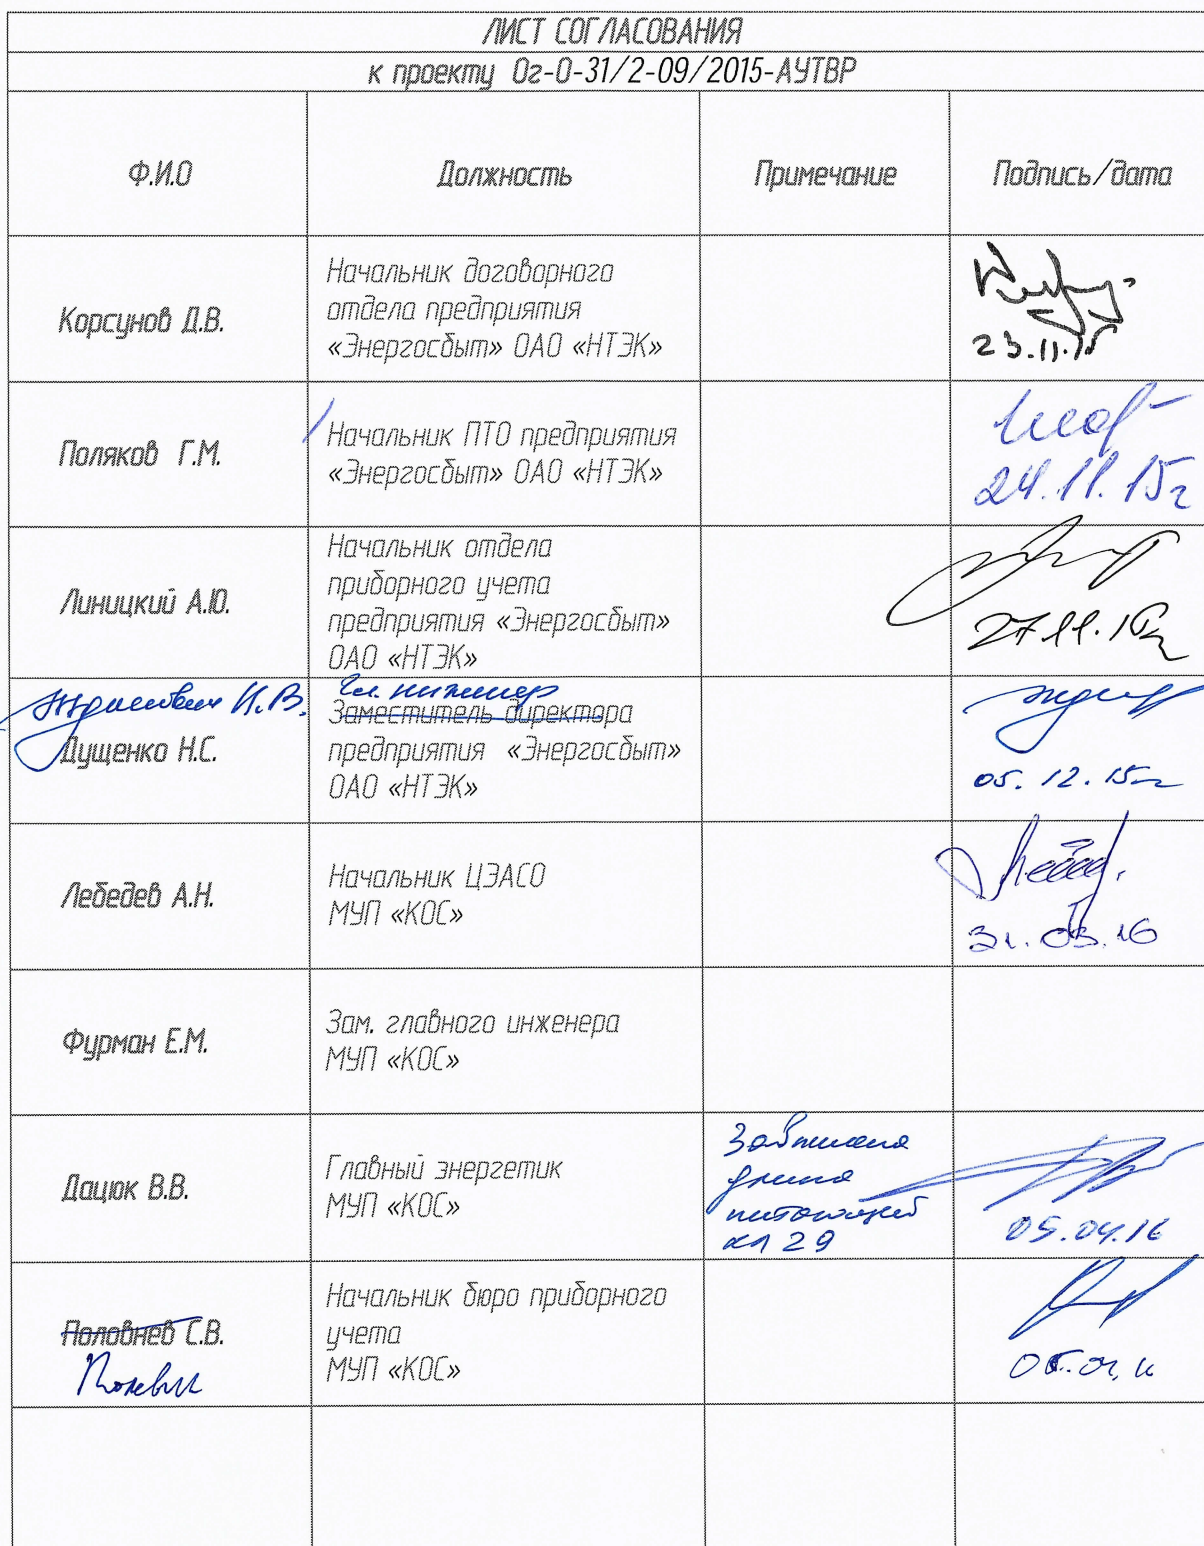 ЛИСТ СОГЛАСОВАНИЯ
к проекту Ог-О-31/2-09/2015-АУТВР
Ф.И.О
Должность
Примечание
Подпись/дата
Корсунов Д.В.
Начальник договорного
отдела предприятия
«Энергосбыт» ОАО «НТЭК»
23.11.15
Поляков Г.М.
Начальник ПТО предприятия
«Энергосбыт» ОАО «НТЭК»
24.11.15г
Линицкий А.Ю.
Начальник отдела
приборного учета
предприятия «Энергосбыт»
ОАО «НТЭК»
27.11.15г
И.В.
Дущенко Н.С.
Гл. инженер
Заместитель директора
предприятия «Энергосбыт»
ОАО «НТЭК»
05.12.15г
Лебедев А.Н.
Начальник ЦЭАСО
МУП «КОС»
31.03.16
Фурман Е.М.
Зам. главного инженера
МУП «КОС»
Дацюк В.В.
Главный энергетик
МУП «КОС»
Завышена
длина
питающей
кл 29
05.04.16
Половнев С.В.
Начальник бюро приборного
учета
МУП «КОС»